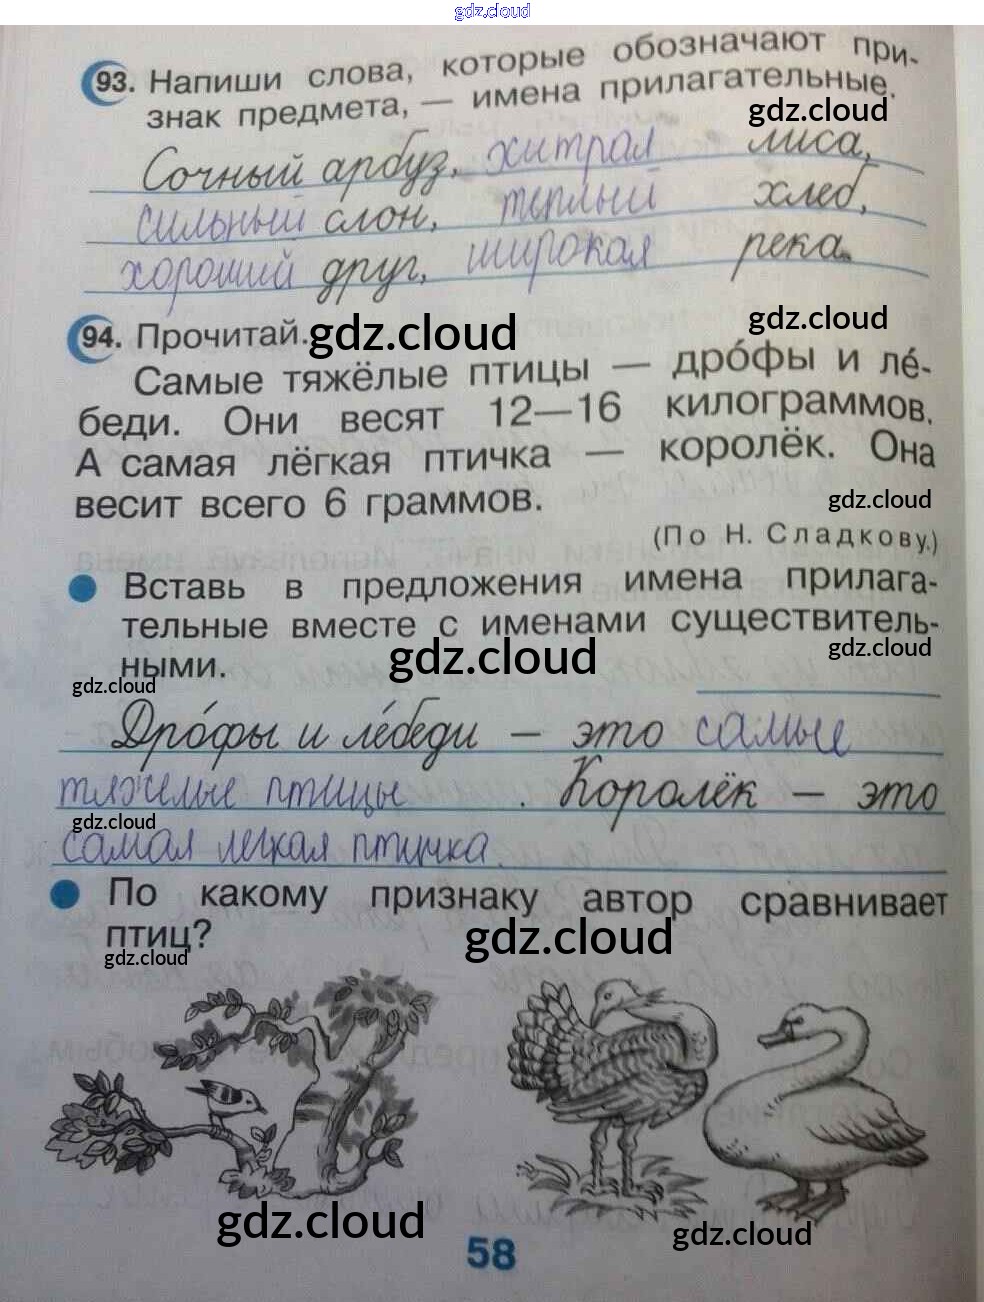 gdz.cloud
93. Напиши слова, которые обозначают при-
знак предмета, — имена прилагательные.
gdz.cloud
Сочный арбуз, хитрая лиса,
сильный слон, теплый хлеб,
хороший друг, широкая река.
94. Прочитай.
gdz.cloud
gdz.cloud
Самые тяжёлые птицы — дро́фы и ле́-
беди. Они весят 12—16 килограммов.
А самая лёгкая птичка — королёк. Она
весит всего 6 граммов.
gdz.cloud
(По Н. Сладкову.)
Вставь в предложения имена прилага-
тельные вместе с именами существитель-
ными.
gdz.cloud
gdz.cloud
gdz.cloud
Дро́фы и ле́беди – это самые
тяжелые птицы. Королёк – это
gdz.cloud
самая легкая птичка.
По какому признаку автор сравнивает
птиц?
gdz.cloud
gdz.cloud
gdz.cloud
gdz.cloud
58